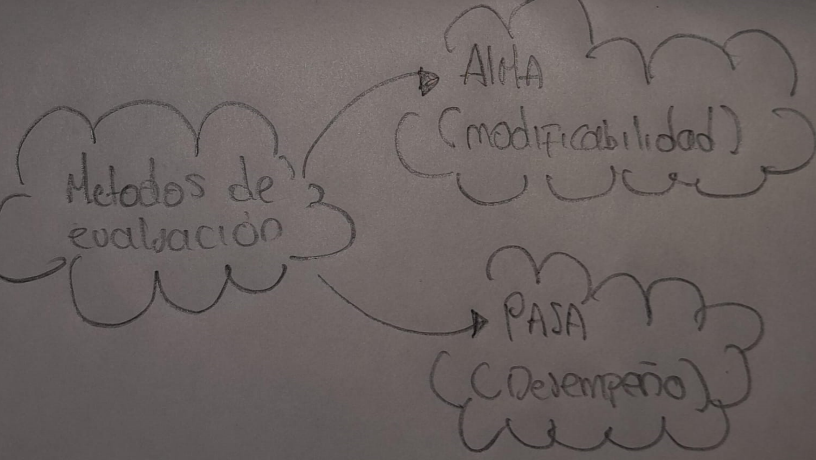 Metodos de
evaluación
ALMA
(modificabilidad)
PASA
(Desempeño)